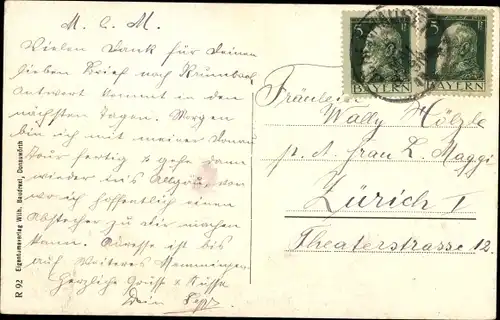 M. l. M.
Vielen Dank für Deinen
lieben Brief nach Krumbach
Antwort kommt in den
nächsten Tagen. Morgen
bin ich mit meiner Donau
Tour fertig & gehe dann
wieder ins Allgäu, von
wo ich hoffentlich einen
Abstecher zu dir machen
kann. Adresse ist bis
auf Weiteres Memmingen.
Herzliche Grüsse & Küsse
Dein
5 5 Pf
BAYERN BAYERN
Fräulein
Wally Hölzle
p. A. frau L. Maggi
Zürich I
Theaterstrasse 12.
R 92 Eigentumsverlag Wilh. Baudrexl, Donauwörth